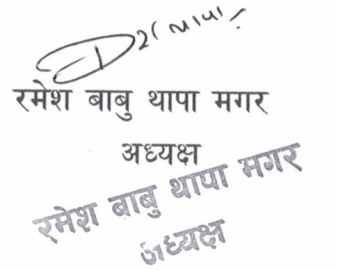 रमेश बाबु थापा मगर
अध्यक्ष
रमेश बाबु थापा मगर
अध्यक्ष